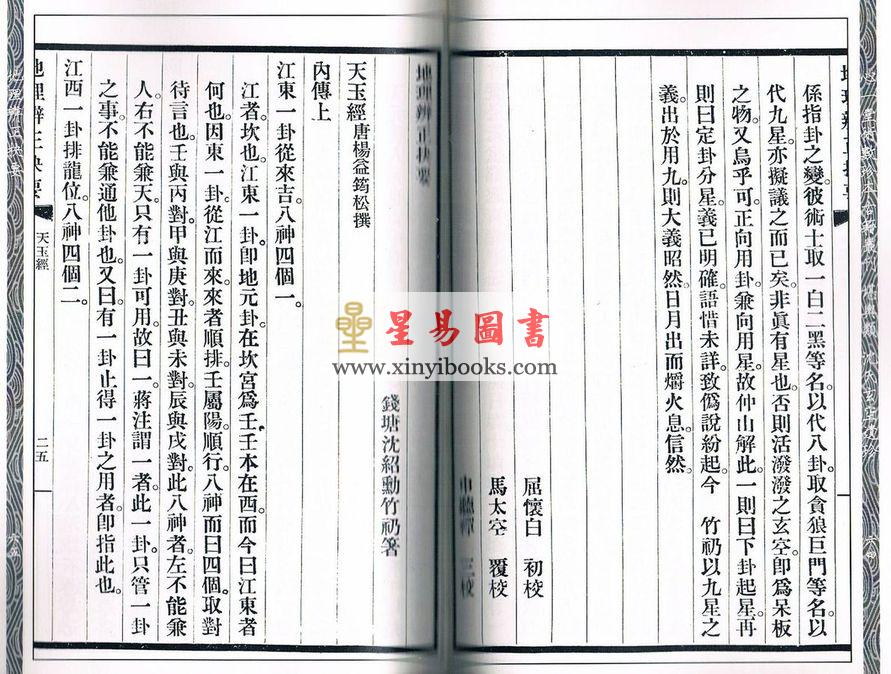 係指卦之變。彼術士取一白二黑等名。以代八卦。取貪狼巨門等名。以
代九星。亦擬議之而已矣。非眞有星也。否則活潑潑之玄空。卽爲呆板
之物。又烏乎可。正向用卦。兼向用星。故仲山解此。一則曰下卦起星。再
則曰定卦分星。義已明確。語惜未詳。致僞說紛起。今 竹礽以九星之
義出於用九。則大義昭然。日月出而爝火息。信然。
屈懷白 初校
馬太空 覆校
三校
地理辨正抉要
錢塘沈紹勳竹礽箸
天玉經唐楊益筠松撰
內傳上
江東一卦從來吉。八神四個一。
江者。坎也。江東一卦。卽地元卦。在坎宮爲壬。壬本在西。而今曰江東者
何也。因東一卦從江而來。來者順排。壬屬陽順行。八神而曰四個。取對
待言也。壬與丙對。甲與庚對。丑與未對。辰與戌對。此八神者。左不能兼
人。右不能兼天。只有一卦可用。故曰一。蔣注謂一者。此一卦只管一卦
之事。不能兼通他卦也。又曰。有一卦止得一卦之用者。卽指此也。
江西一卦排龍位。八神四個二。
地理辨正抉要
天玉經
二五
星易圖書
www.xinyibooks.com